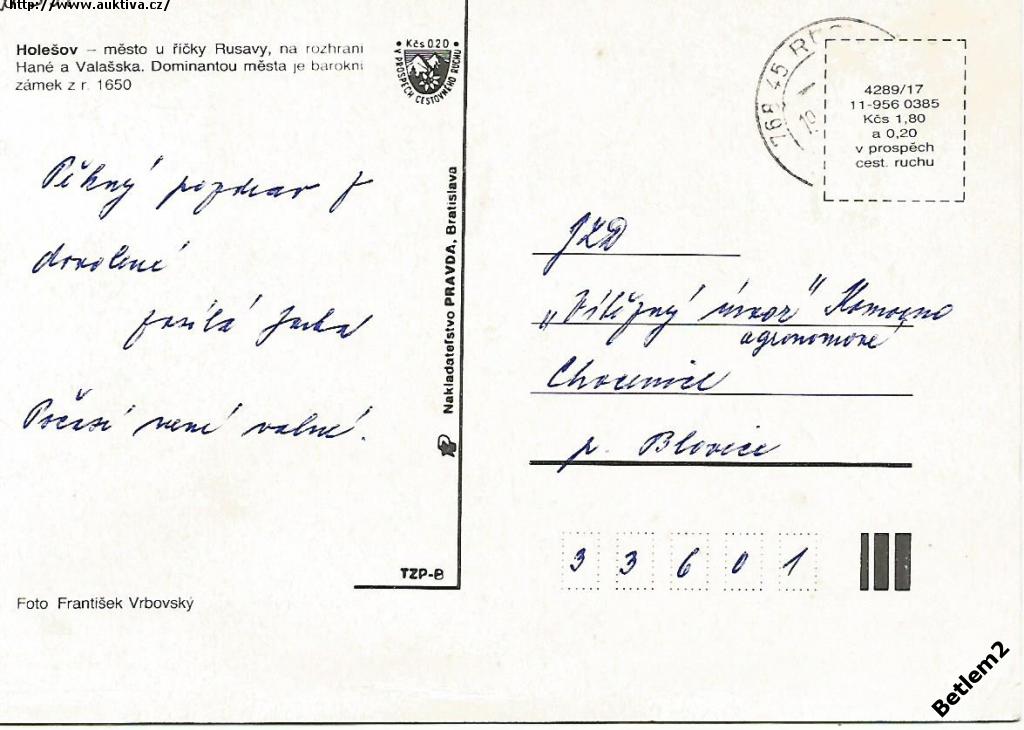 http://www.auktiva.cz/
Holešov – město u říčky Rusavy, na rozhraní
Hané a Valašska. Dominantou města je barokní
zámek z r. 1650
Kčs 0,20
V PROSPĚCH CESTOVNÉHO RUCHU
Pěkný pozdrav z
dovolené
posílá
Počasí není valné.
Nakladateľstvo PRAVDA, Bratislava
TZP-B
Foto František Vrbovský
768 45
4289/17
11-956 0385
Kčs 1,80
a 0,20
v prospěch
cest. ruchu
JZD
„Vítězný únor"
agronomové
Chocenice
p. Blovice
33601
Betlem2